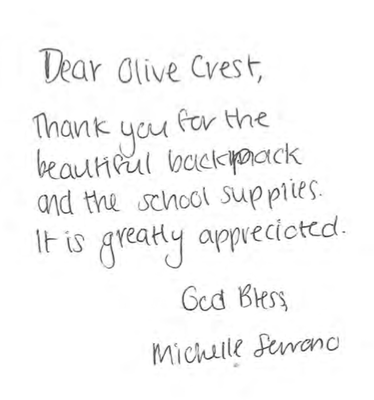 Dear Olive Crest,
Thank you for the
beautiful backpack
and the school supplies.
It is greatly appreciated.
God Bless,
Michelle Serrano